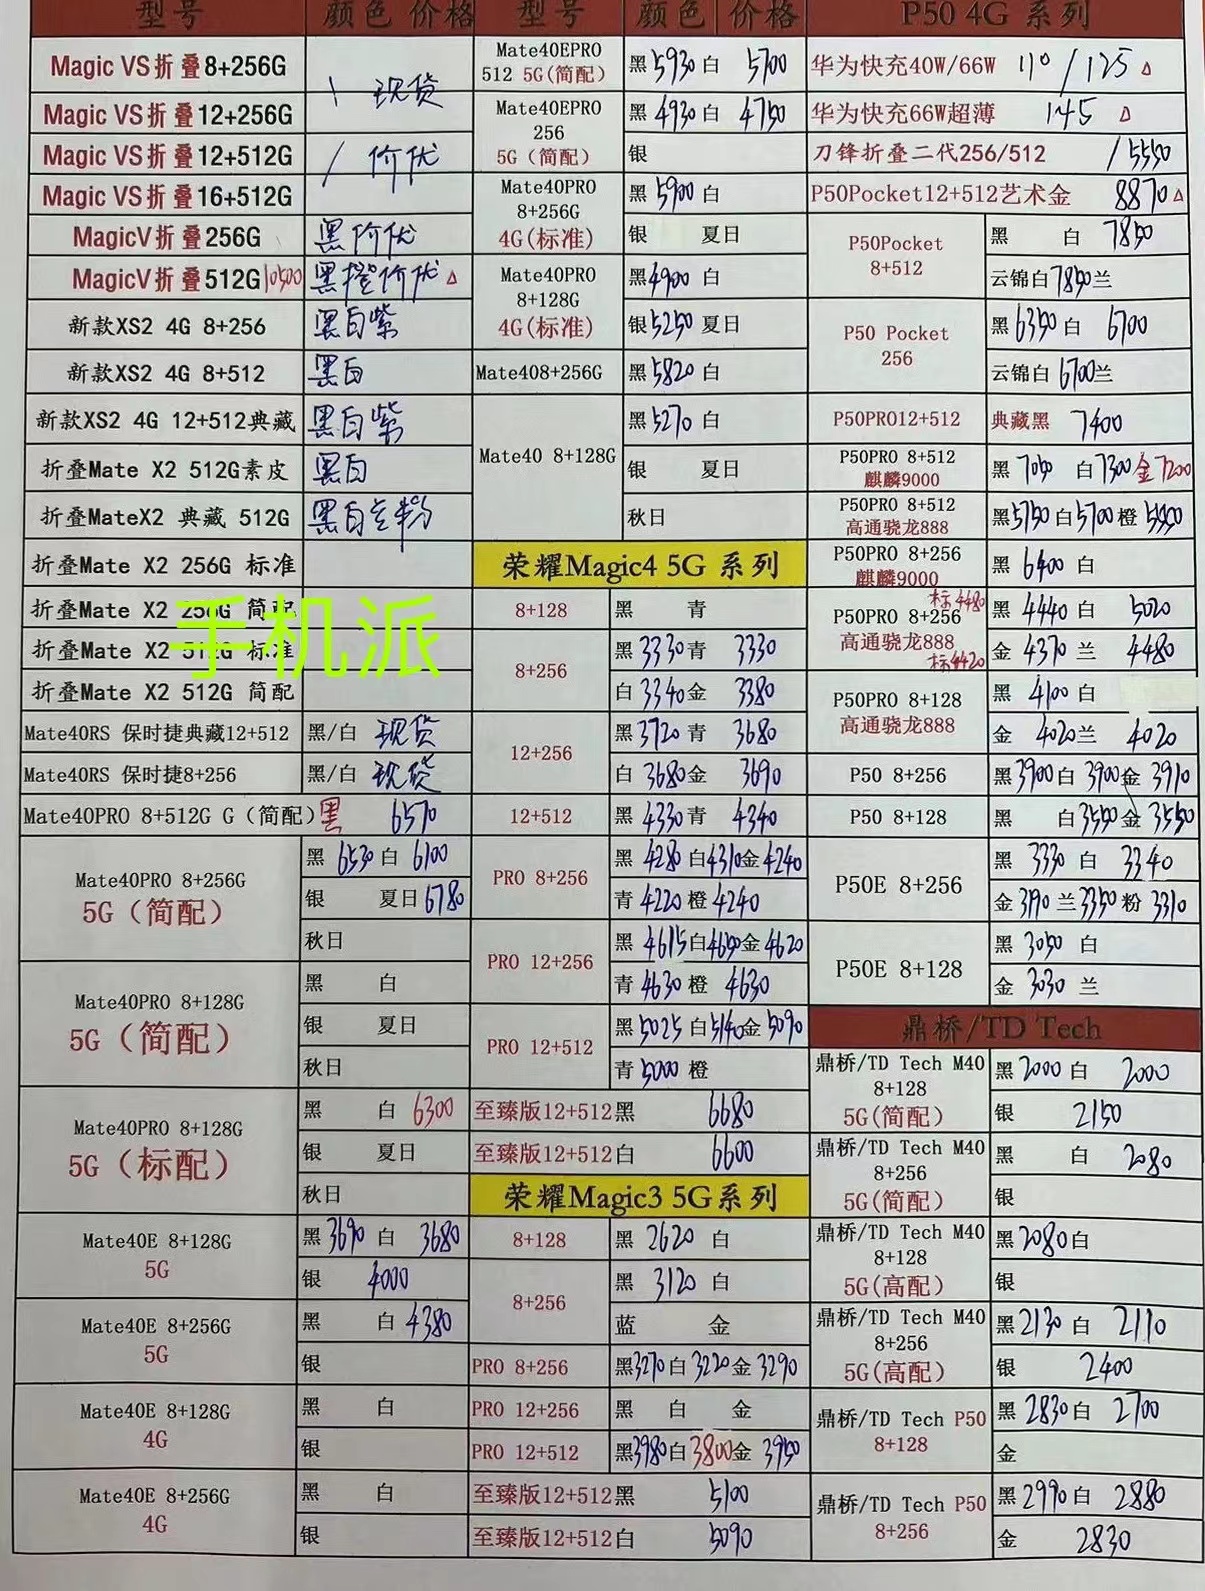 型号 颜色 价格
Magic VS折叠8+256G
Magic VS折叠12+256G 现货
Magic VS折叠12+512G / 价优
Magic VS折叠16+512G
MagicV折叠256G 黑价优
MagicV折叠512G 10500 黑橙价优 △
新款XS2 4G 8+256 黑白紫
新款XS2 4G 8+512 黑白
新款XS2 4G 12+512典藏 黑白紫
折叠Mate X2 512G素皮 黑白
折叠MateX2 典藏 512G 黑白兰粉
折叠Mate X2 256G 标准
折叠Mate X2 256G 简配
手机派
折叠Mate X2 512G 标准
折叠Mate X2 512G 简配
Mate40RS 保时捷典藏12+512 黑/白 现货
Mate40RS 保时捷8+256 黑/白 现货
Mate40PRO 8+512G G（简配）黑 6570
Mate40PRO 8+256G
5G（简配）
黑 6530 白 6100
银 夏日 6780
秋日
Mate40PRO 8+128G
5G（简配）
黑 白
银 夏日
秋日
Mate40PRO 8+128G
5G（标配）
黑 白 6300
银 夏日
秋日
Mate40E 8+128G
5G
黑 3690 白 3680
银 4000
Mate40E 8+256G
5G
黑 白 4380
银
Mate40E 8+128G
4G
黑 白
银
Mate40E 8+256G
4G
黑 白
银
型号 颜色 价格
Mate40EPRO
512 5G(简配)
黑 5930 白 5700
Mate40EPRO
256
5G（简配）
黑 4930 白 4750
银
Mate40PRO
8+256G
4G(标准)
黑 5900 白
银 夏日
Mate40PRO
8+128G
4G(标准)
黑 4900 白
银 5250 夏日
Mate408+256G 黑 5820 白
Mate40 8+128G
黑 5270 白
银 夏日
秋日
荣耀Magic4 5G 系列
8+128 黑 青
8+256
黑 3330 青 3330
白 3340 金 3380
12+256
黑 3720 青 3680
白 3680 金 3690
12+512 黑 4330 青 4340
PRO 8+256
黑 4280 白 4310 金 4240
青 4220 橙 4240
PRO 12+256
黑 4615 白 4650 金 4620
青 4630 橙 4630
PRO 12+512
黑 5025 白 5140 金 5090
青 5000 橙
至臻版12+512黑 6680
至臻版12+512白 6600
荣耀Magic3 5G系列
8+128 黑 2620 白
8+256
黑 3120 白
蓝 金
PRO 8+256 黑 3270 白 3220 金 3290
PRO 12+256 黑 白 金
PRO 12+512 黑 3980 白 3800 金 3950
至臻版12+512黑 5100
至臻版12+512白 5090
P50 4G 系列
华为快充40W/66W 110 / 125 △
华为快充66W超薄 145 △
刀锋折叠二代256/512 / 5550
P50Pocket12+512艺术金 8870 △
P50Pocket
8+512
黑 白 7850
云锦白 7850 兰
P50 Pocket
256
黑 6350 白 6700
云锦白 6700 兰
P50PRO12+512 典藏黑 7400
P50PRO 8+512
麒麟9000
黑 7050 白 7300 金 7200
P50PRO 8+512
高通骁龙888
黑 5750 白 5700 橙
P50PRO 8+256
麒麟9000
黑 6400 白
P50PRO 8+256 标4480
高通骁龙888 标4420
黑 4440 白 5020
金 4370 兰 4480
P50PRO 8+128
高通骁龙888
黑 4100 白
金 4020 兰 4020
P50 8+256 黑 3900 白 3900 金 3910
P50 8+128 黑 白 3550 金 3550
P50E 8+256
黑 3330 白 3340
金 3190 兰 3350 粉 3310
P50E 8+128
黑 3050 白
金 3030 兰
鼎桥/TD Tech
鼎桥/TD Tech M40
8+128
5G(简配)
黑 2000 白 2000
银 2150
鼎桥/TD Tech M40
8+256
5G(简配)
黑 白 2080
银
鼎桥/TD Tech M40
8+128
5G(高配)
黑 2080 白
银
鼎桥/TD Tech M40
8+256
5G(高配)
黑 2130 白 2110
银 2400
鼎桥/TD Tech P50
8+128
黑 2830 白 2700
金
鼎桥/TD Tech P50
8+256
黑 2990 白 2880
金 2830